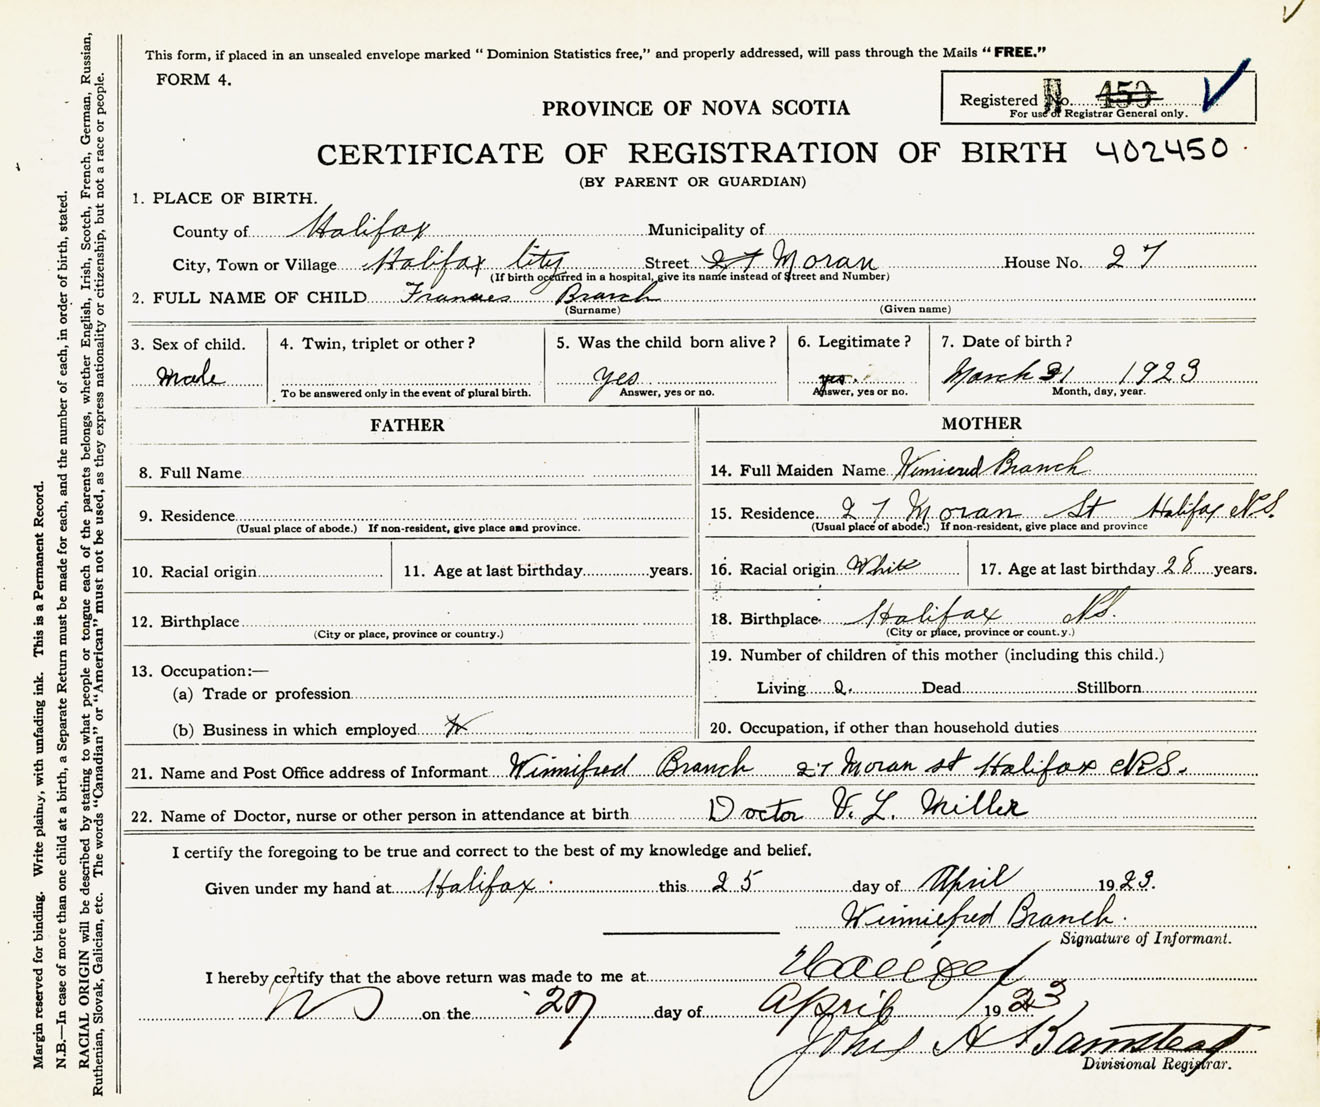 This form, if placed in an unsealed envelope marked “ Dominion Statistics free,” and properly addressed, will pass through the Mails “ FREE.”
FORM 4.
Registered No. 450
For use of Registrar General only.
PROVINCE OF NOVA SCOTIA
CERTIFICATE OF REGISTRATION OF BIRTH 402450
(BY PARENT OR GUARDIAN)
1. PLACE OF BIRTH.
County of Halifax Municipality of
City, Town or Village Halifax City Street 27 Moran House No. 27
(If birth occurred in a hospital, give its name instead of Street and Number)
2. FULL NAME OF CHILD Frances Branch
(Surname) (Given name)
3. Sex of child. 4. Twin, triplet or other? 5. Was the child born alive? 6. Legitimate? 7. Date of birth?
Male yes yes. March 31 1923
To be answered only in the event of plural birth. Answer, yes or no. Answer, yes or no. Month, day, year.
FATHER
8. Full Name
9. Residence
(Usual place of abode.) If non-resident, give place and province.
10. Racial origin 11. Age at last birthday years.
12. Birthplace
(City or place, province or country.)
13. Occupation:—
(a) Trade or profession
(b) Business in which employed
MOTHER
14. Full Maiden Name Winiered Branch
15. Residence 27 Moran St Halifax N.S.
(Usual place of abode.) If non-resident, give place and province
16. Racial origin White 17. Age at last birthday 28 years.
18. Birthplace Halifax N.S.
(City or place, province or count.y.)
19. Number of children of this mother (including this child.)
Living 2. Dead Stillborn
20. Occupation, if other than household duties
21. Name and Post Office address of Informant Winnifred Branch 27 Moran st Halifax N.S.
22. Name of Doctor, nurse or other person in attendance at birth Doctor V. L. Miller
I certify the foregoing to be true and correct to the best of my knowledge and belief.
Given under my hand at Halifax this 25 day of April 1923.
Winniefred Branch.
Signature of Informant.
I hereby certify that the above return was made to me at Halifax
NS on the 27 day of April 1923
John A Bamstead
Divisional Registrar.
Margin reserved for binding. Write plainly, with unfading ink. This is a Permanent Record.
N.B.—In case of more than one child at a birth, a Separate Return must be made for each, and the number of each, in order of birth, stated.
RACIAL ORIGIN will be described by stating to what people or tongue each of the parents belongs, whether English, Irish, Scotch, French, German, Russian,
Ruthenian, Slovak, Galician, etc. The words “Canadian” or “American” must not be used, as they express nationality or citizenship, but not a race or people.